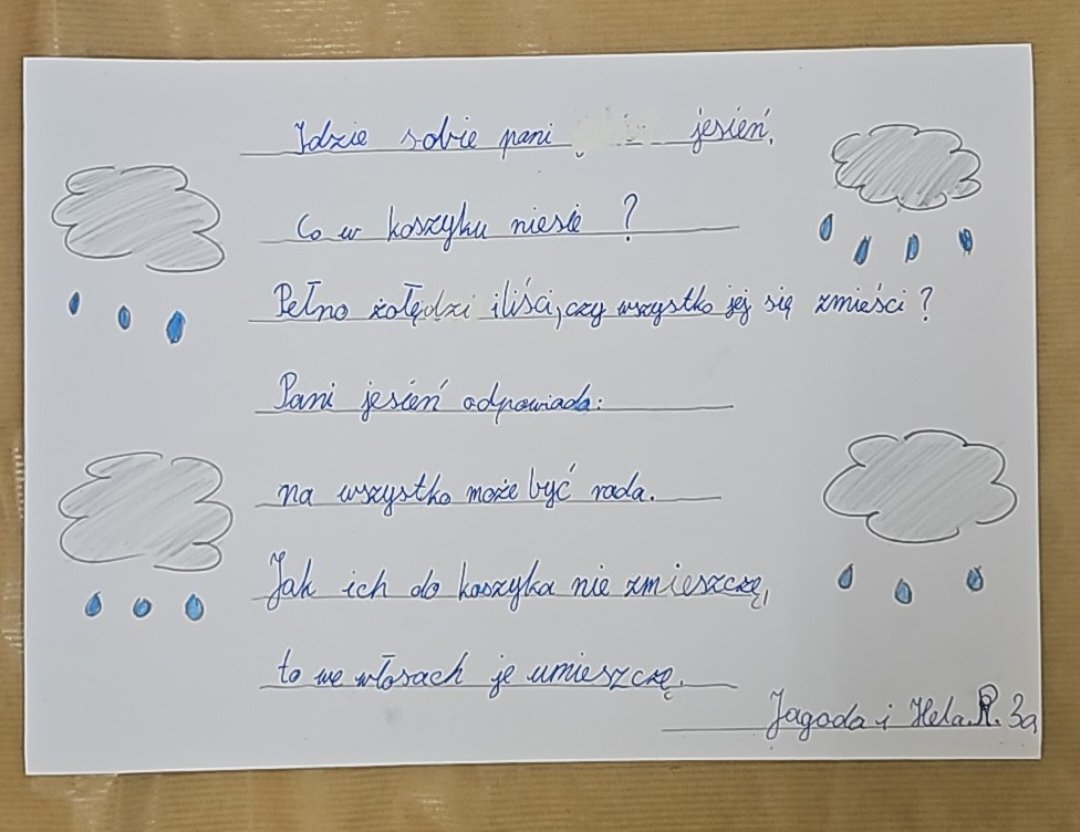 Idzie sobie pani jesień,
Co w koszyku niesie ?
Pełno żołędzi i liści, czy wszystko jej się zmieści ?
Pani jesień odpowiada:
na wszystko może być rada.
Jak ich do koszyka nie zmieszczę,
to we włosach je umieszczę.
Jagoda i Hela R. 3a